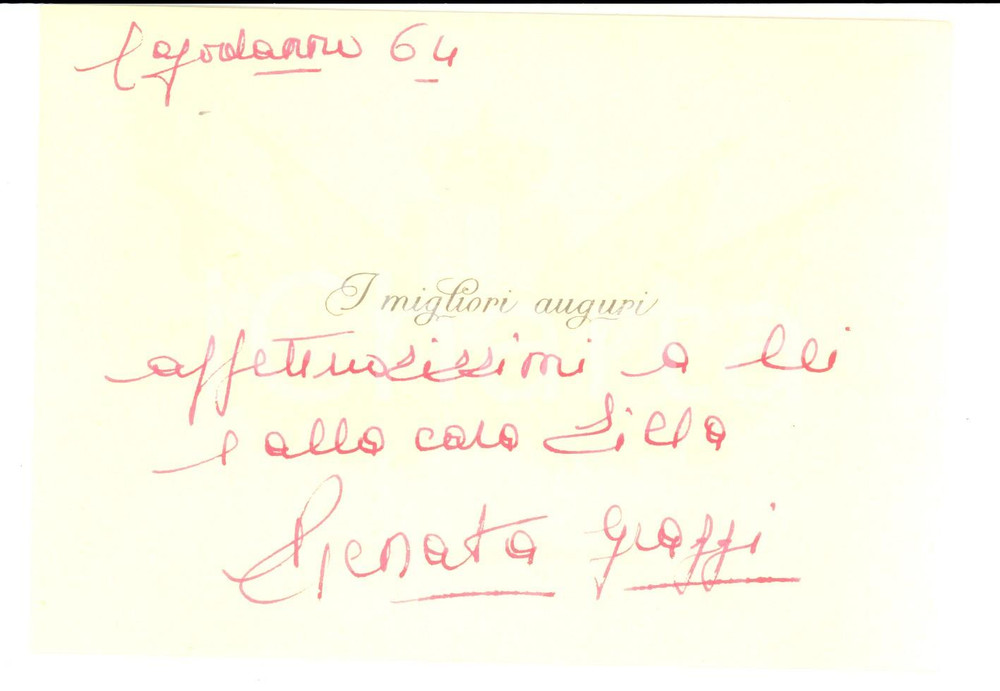 Capodanno 64
I migliori auguri
affettuosissimi a lei
e alla cara Lilla
Renata Graffi